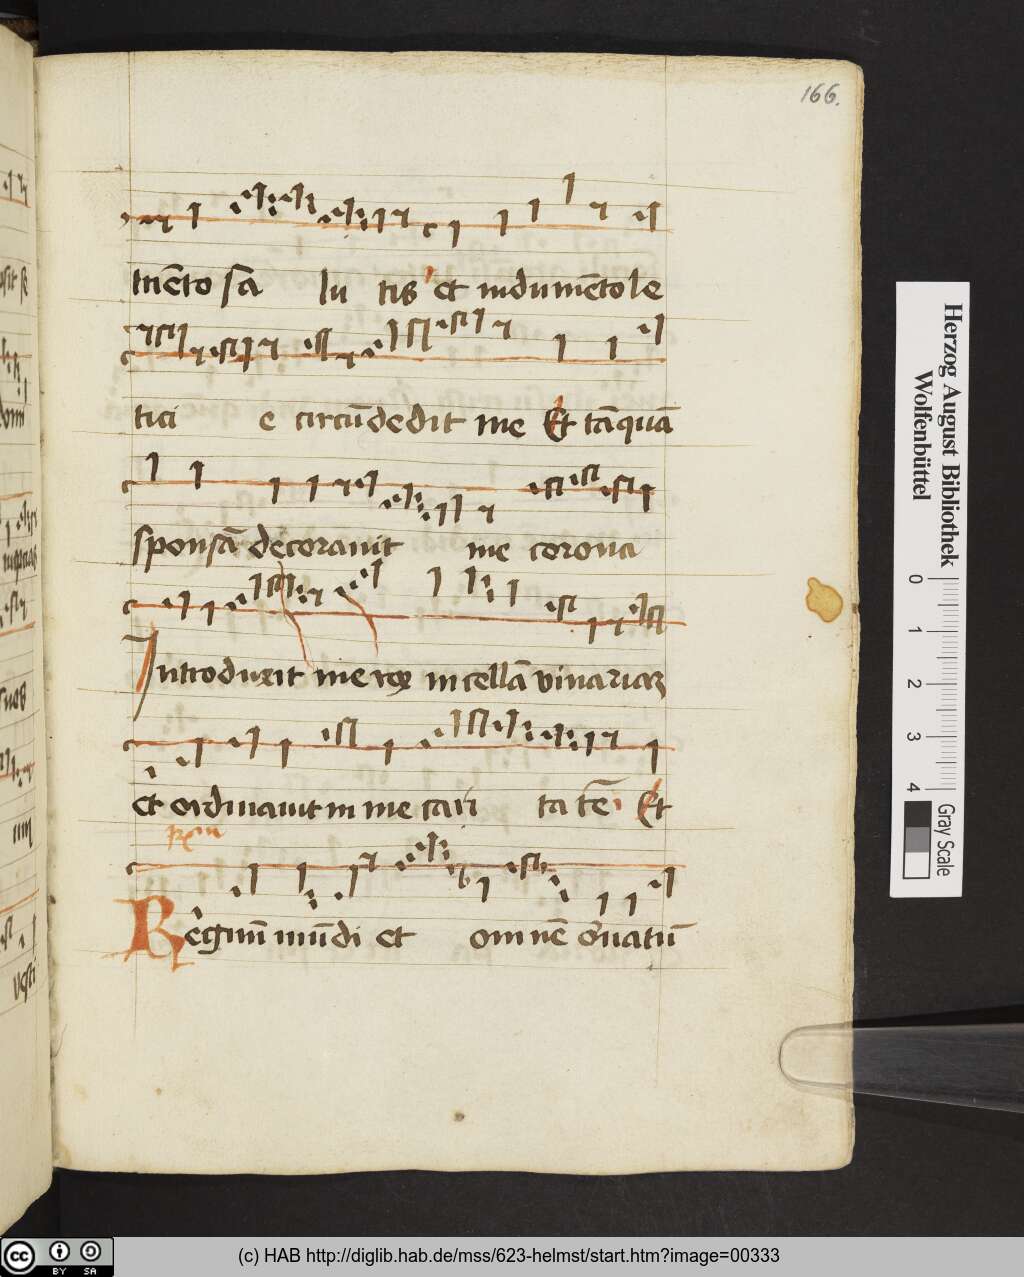 166.
mēto sā lu tis et indumēto le
tici e circūdedit me Et tāquā
sponsā decorauit me corona
Introduxit me rex in cellā vinariaz
et ordinauit in me cari ta tē Et
Regnū mūdi et omnē ornatū
Herzog August Bibliothek
Wolfenbüttel
0 1 2 3 4
Gray Scale
cc BY SA
(c) HAB http://diglib.hab.de/mss/623-helmst/start.htm?image=00333